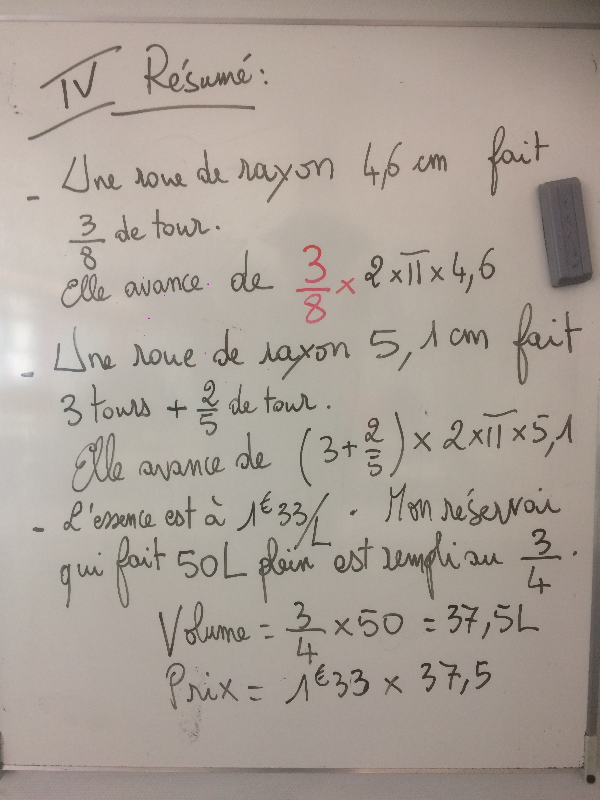 IV Résumé:
- Une roue de rayon 4,6 cm fait
3/8 de tour.
Elle avance de 3/8 × 2 × π × 4,6
- Une roue de rayon 5,1 cm fait
3 tours + 2/5 de tour.
Elle avance de (3 + 2/5) × 2 × π × 5,1
- L'essence est à 1€33/L. Mon réservoi
qui fait 50L plein est rempli au 3/4.
Volume = 3/4 × 50 = 37,5L
Prix = 1€33 × 37,5